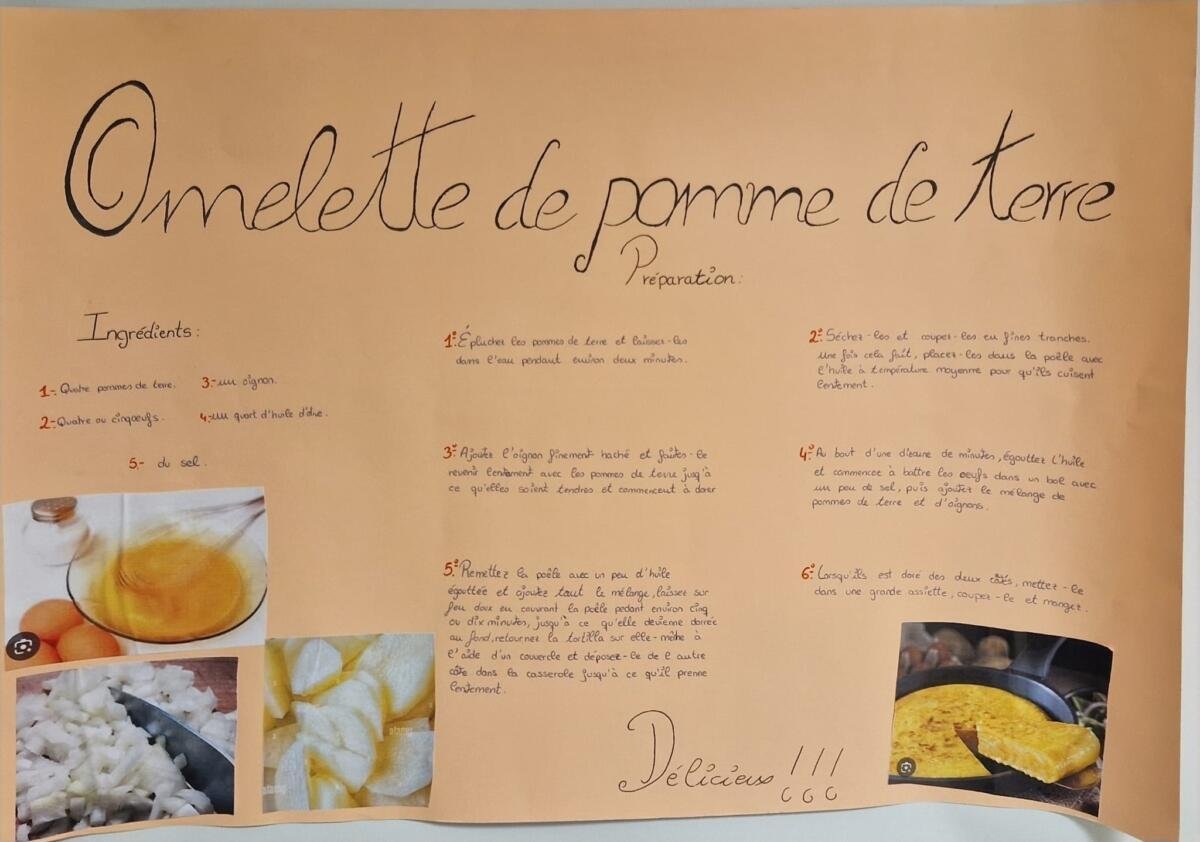 Omelette de pomme de terre
Préparation:
Ingrédients:
1- Quatre pommes de terre.
3- un oignon.
2- Quatre ou cinqoeufs.
4- un quart d'huile d'olive.
5- du sel.
1º Éplucher les pommes de terre et laisser-les
dans l'eau pendant environ deux minutes.
2º Séchez-les et coupez-les en fines tranches.
Une fois cela fait, placez-les dans la poêle avec
l'huile à température moyenne pour qu'ils cuisent
lentement.
3º Ajoutez l'oignon finement haché et faites-le
revenir lentement avec les pommes de terre jusq'à
ce qu'elles soient tendres et commencent à dorer
4º Au bout d'une dizaine de minutes, égouttez l'huile
et commencez à battre les oeufs dans un bol avec
un peu de sel, puis ajoutez le mélange de
pommes de terre et d'oignons.
5º Remettez la poêle avec un peu d'huile
égouttée et ajoutez tout le mélange, laissez sur
feu doux en couvrant la poêle pedant environ cinq
ou dix minutes, jusqu'à ce qu'elle devienne dorrée
au fond, retournez la tortilla sur elle-même à
l'aide d'un couvercle et déposez-le de l'autre
côte dans la casserole jusqu'à ce qu'il prenne
lentement.
6º Lorsqu'ils est doré des deux côtés, mettez-le
dans une grande assiette, coupez-le et mangez.
Délicieux !!!
alamy
alamy